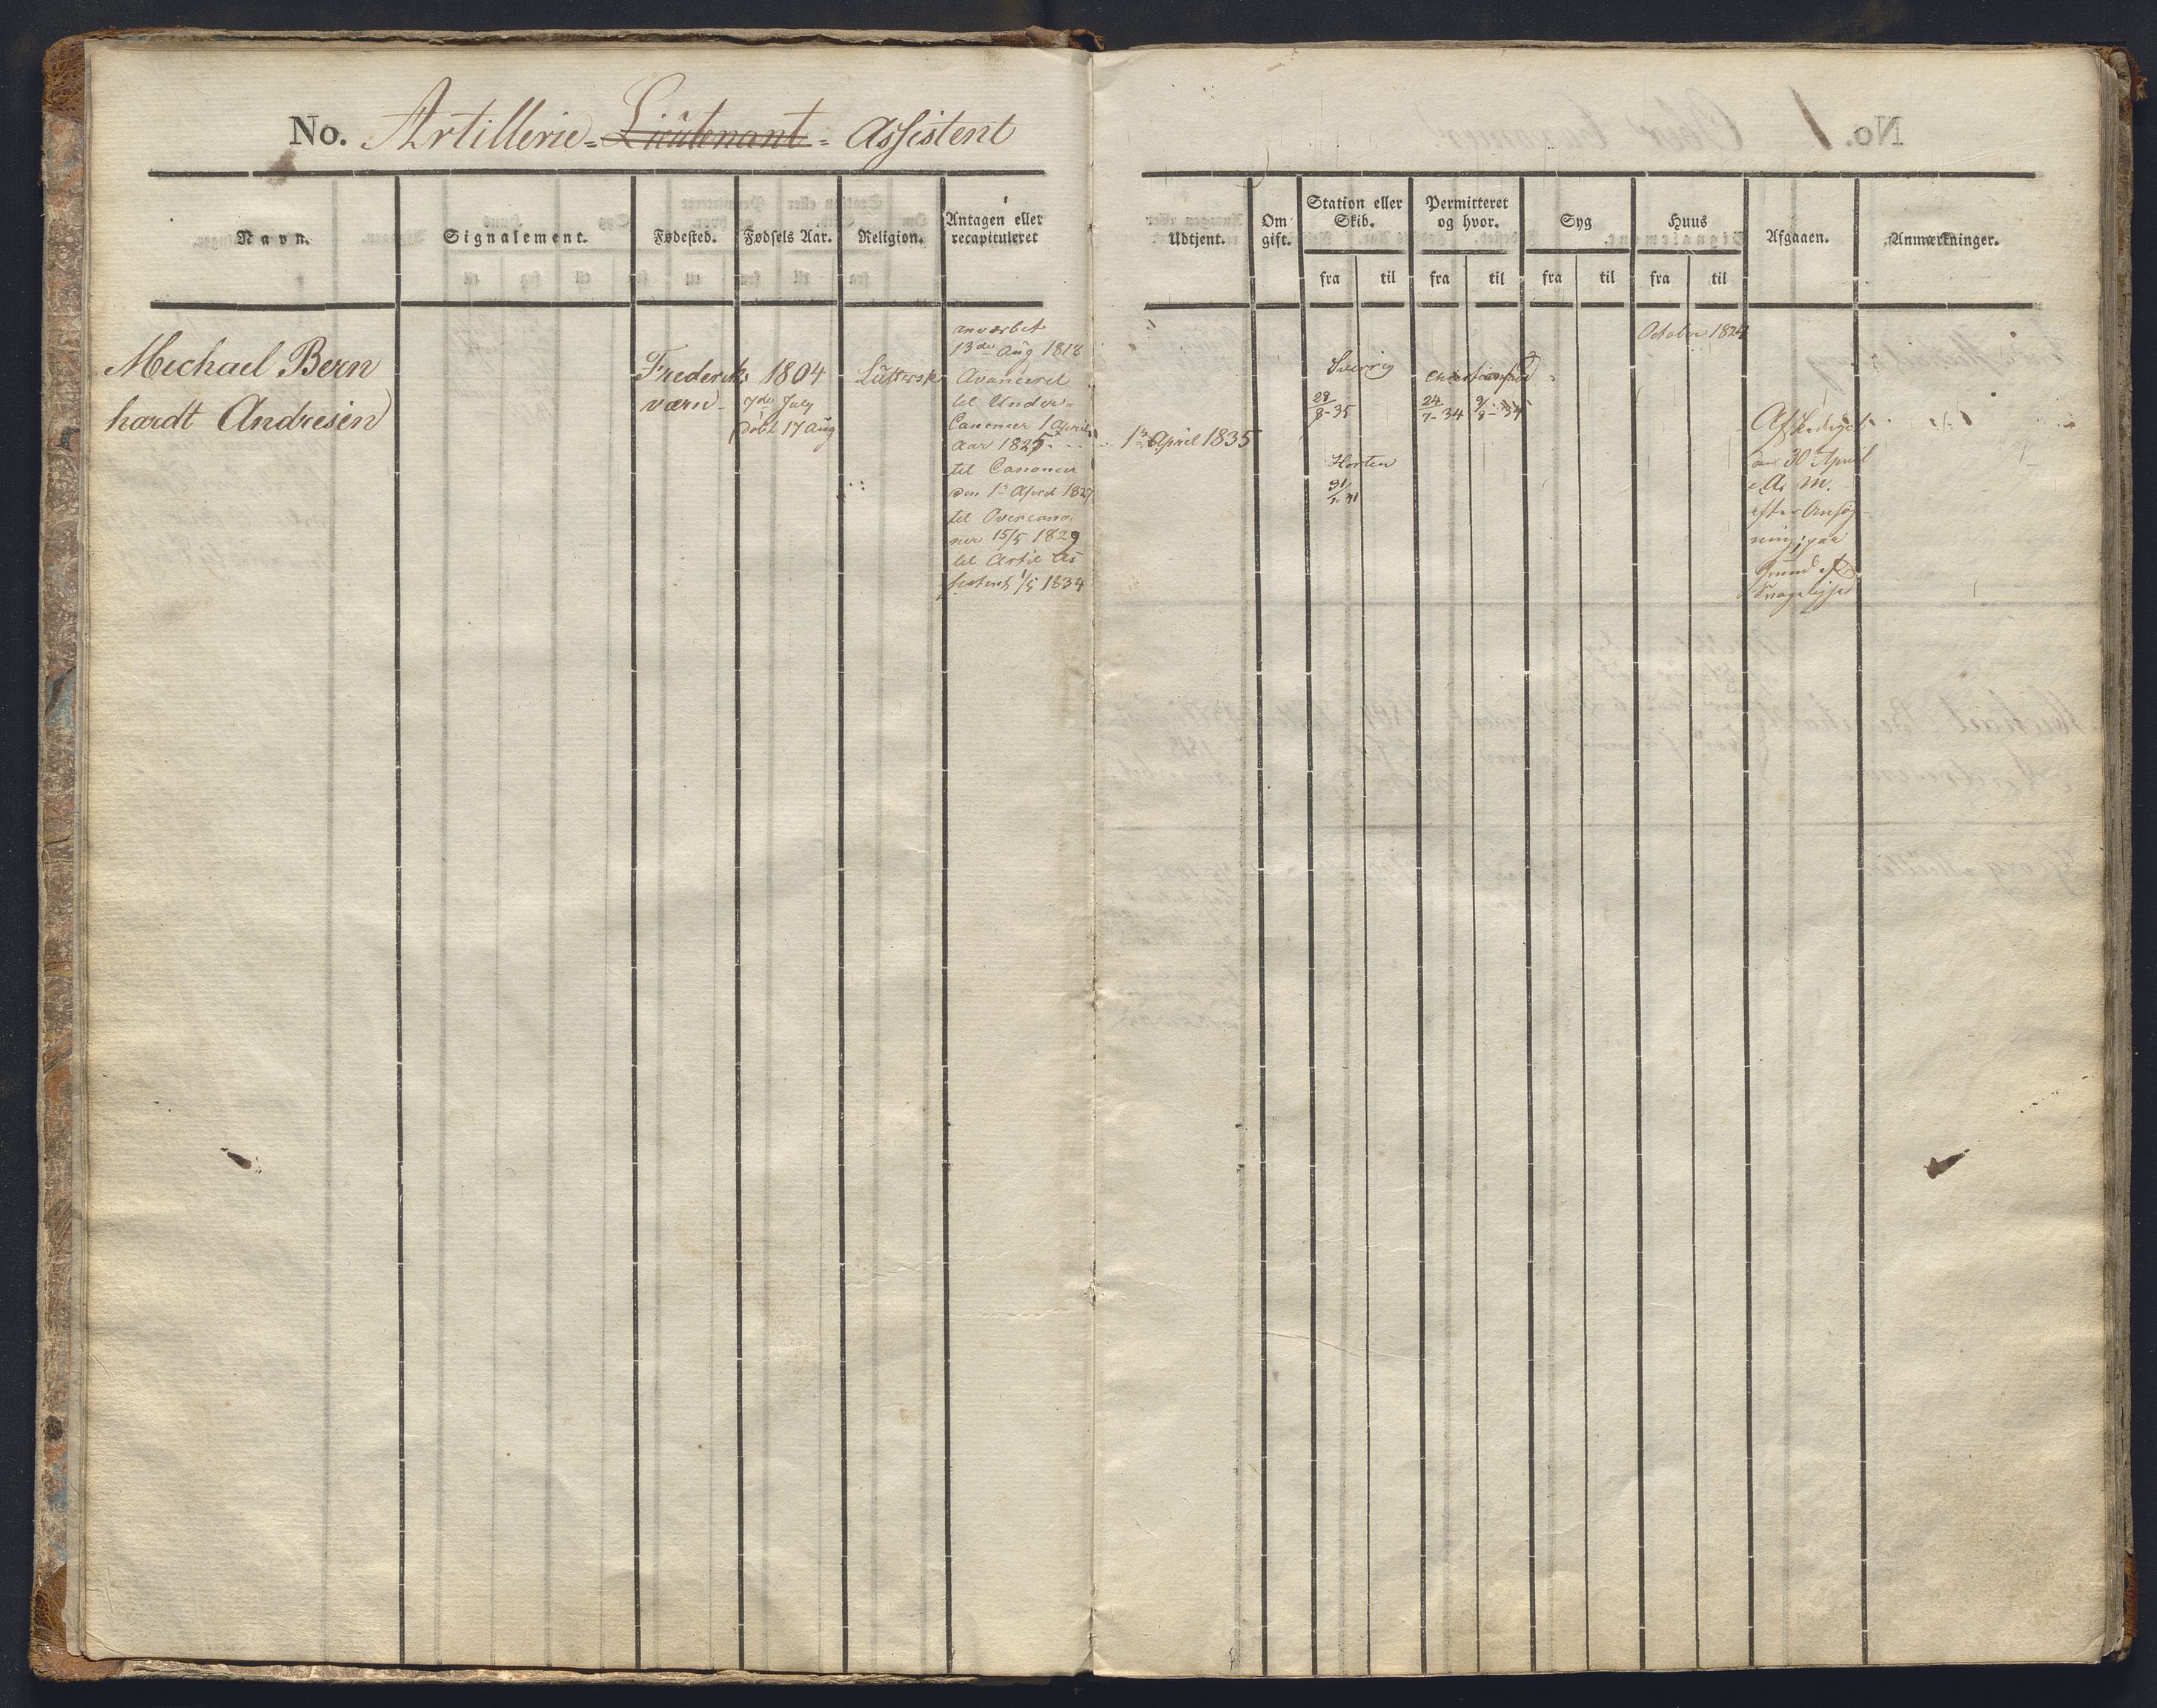 No. Artillerie= Lieutenant = Assistent
Navn.
Signalement.
Fødested.
Fødsels Aar.
Religion.
Antagen eller
recapituleret
Udtjent.
Om
gift.
Station eller
Skib.
fra
til
Permitteret
og hvor.
fra
til
Syg
fra
til
Huus
fra
til
Afgaaen.
Anmærkninger.
Michael Bern
hardt Andresen
Frederiks
værn
1804
7de July
döbt 17 Aug
Luttersk
anværbet
13de Aug 1818
Avanceret
til Under=
Canoneer 1 April
Aar 1825
til Canoneer
den 1ste April 1827
til Overcano
neer 15/5 1829
til Artil As
sistent 1/5 1834
1ste April 1835
Sverrig
28/8-35
Horten
24/7-34
9/8-34
October 1824
Afskediget
den 30 April
efter Ansög
ning paa
Grund af
Svagelighed
No. 1